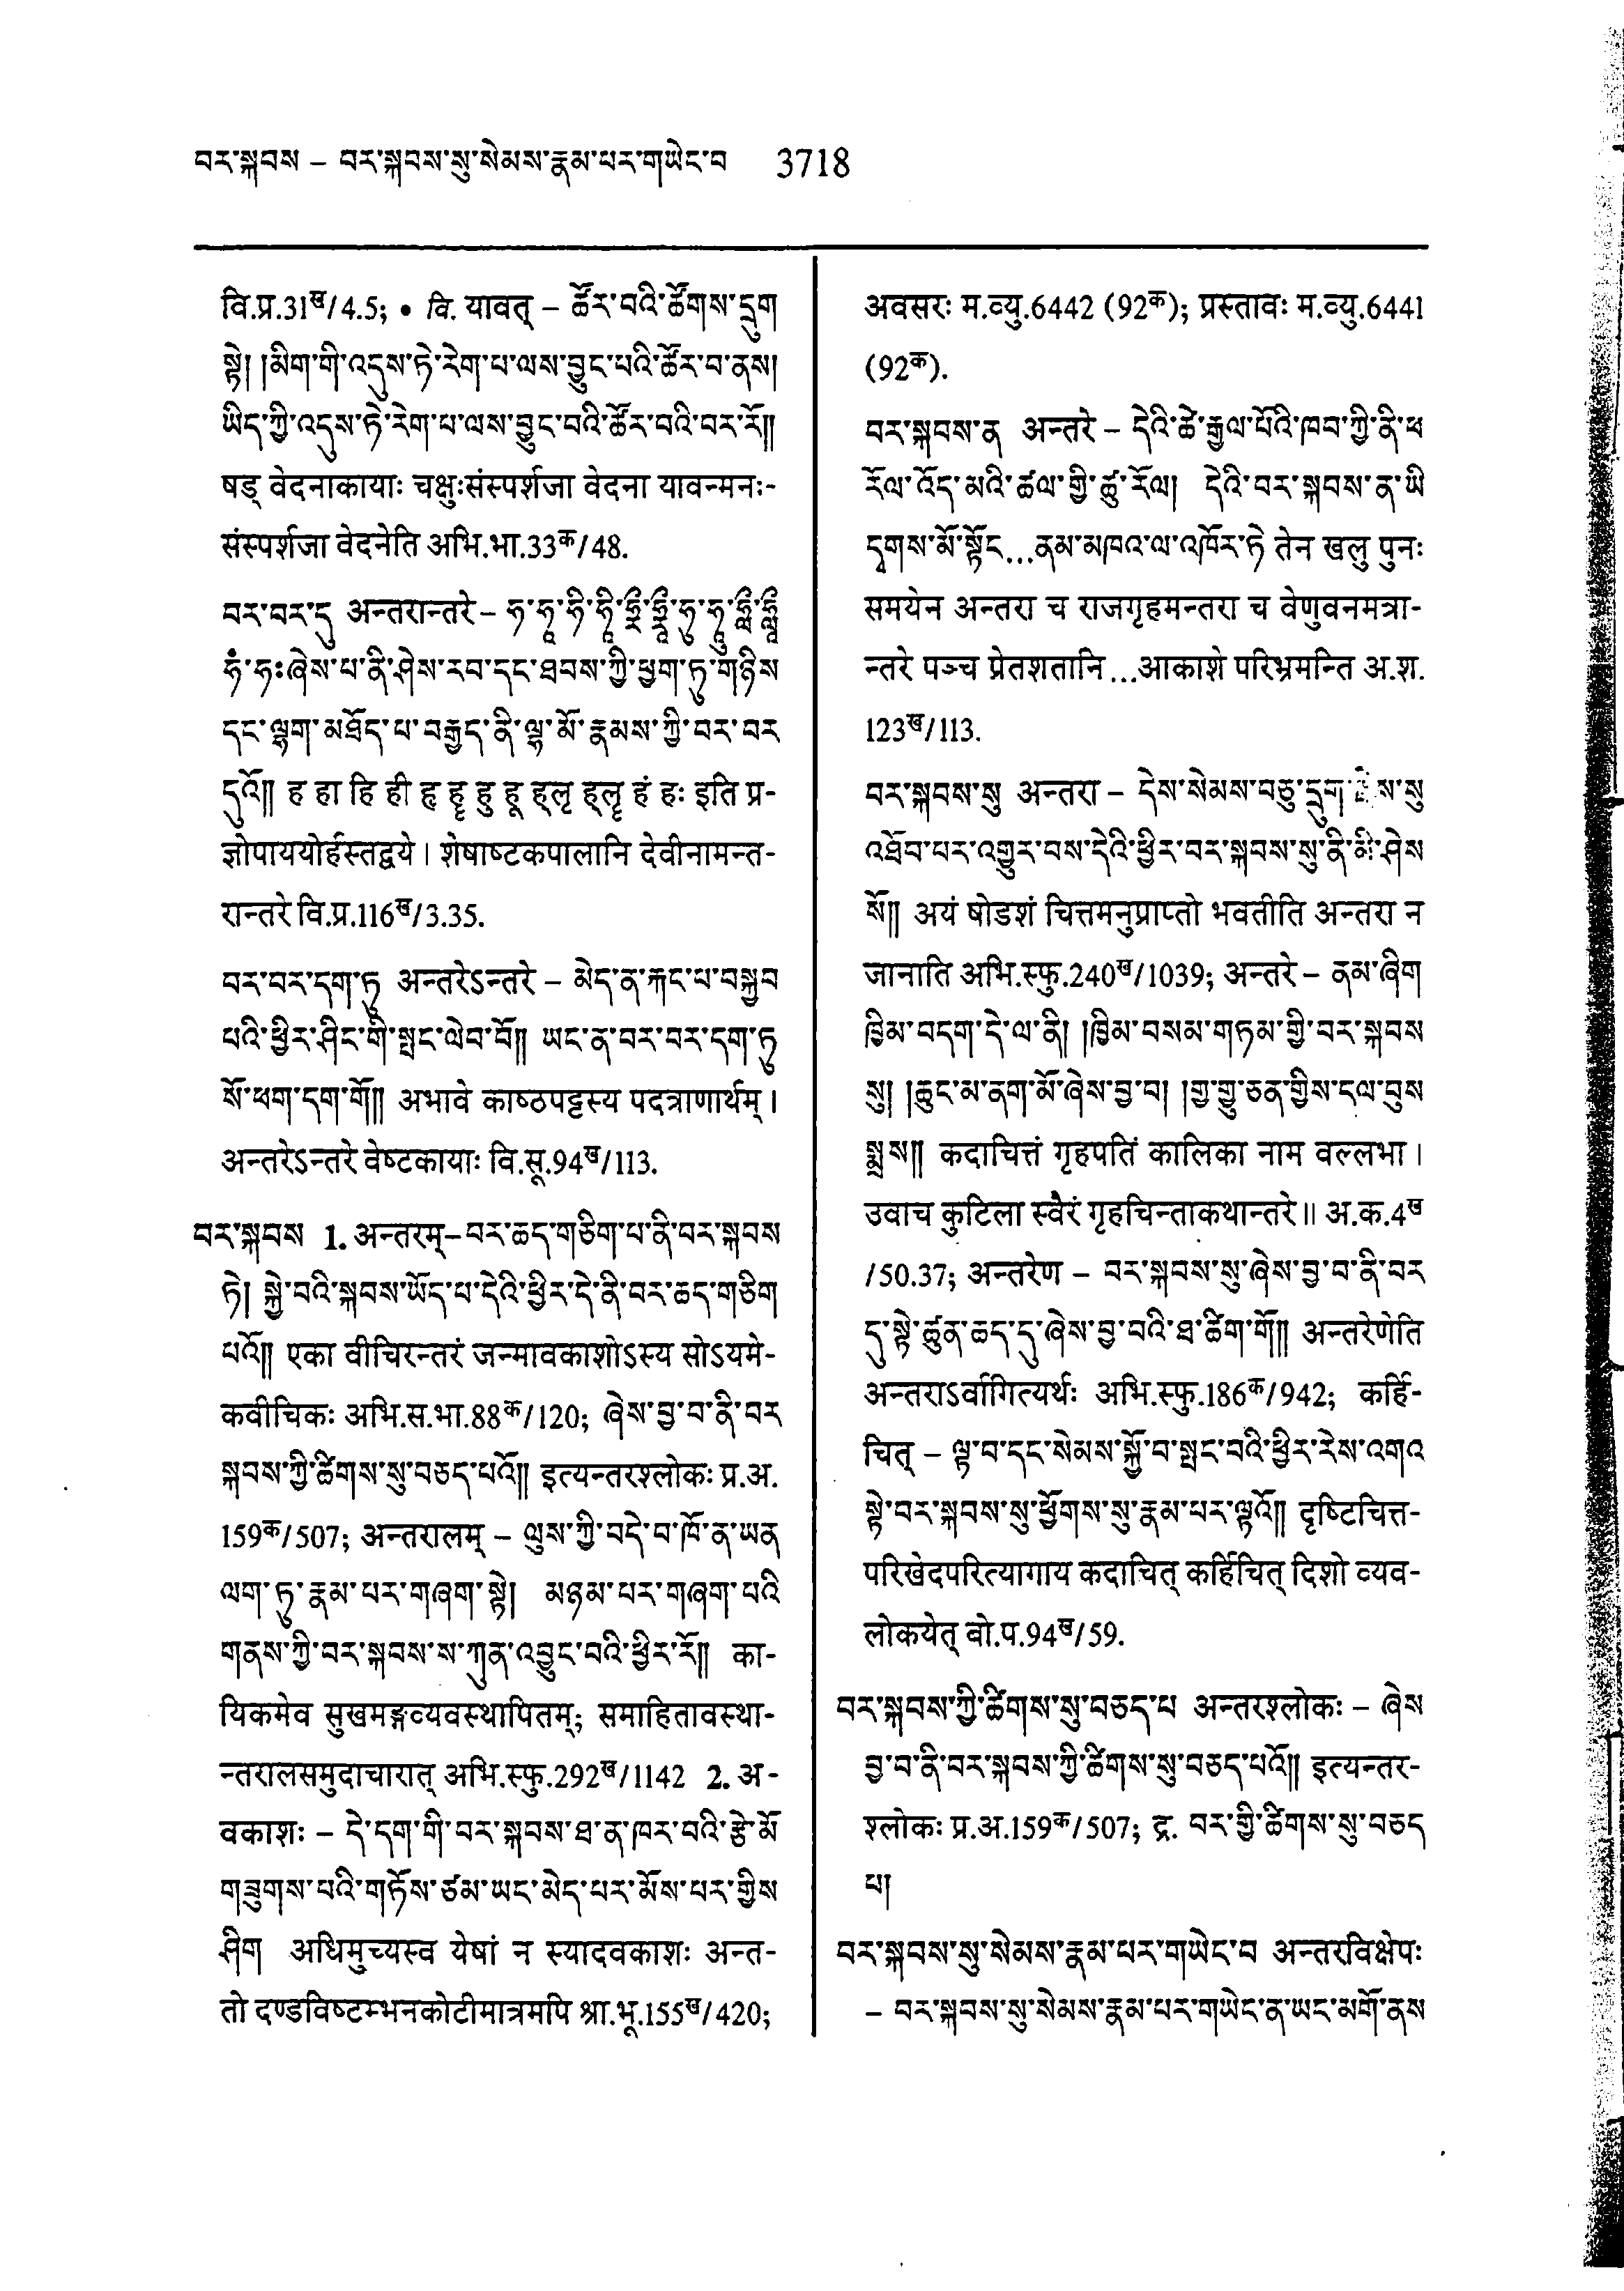 བར་སྐབས – བར་སྐབས་སུ་སེམས་རྣམ་པར་གཡེང་བ 3718
वि.प्र.31ख/4.5; • वि. यावत् – ཚོར་བའི་ཚོགས་དྲུག
སྟེ། །མིག་གི་འདུས་ཏེ་རེག་པ་ལས་བྱུང་པའི་ཚོར་བ་ནས།
ཡིད་ཀྱི་འདུས་ཏེ་རེག་པ་ལས་བྱུང་བའི་ཚོར་བའི་བར་རོ༎
षड् वेदनाकायाः चक्षुःसंस्पर्शजा वेदना यावन्मनः-
संस्पर्शजा वेदनेति अभि.भा.33क/48.
བར་བར་དུ अन्तरान्तरे – ཧ་ཧཱ་ཧི་ཧཱི་ཧྲྀ་ཧྲཱྀ་ཧུ་ཧཱུ་ཧླྀ་ཧླཱྀ
ཧཾ་ཧཿཞེས་པ་ནི་ཤེས་རབ་དང་ཐབས་ཀྱི་ཕྱག་ཏུ་གཉིས
དང་ལྷག་མཐོད་པ་བརྒྱད་ནི་ལྷ་མོ་རྣམས་ཀྱི་བར་བར
དུའོ༎ ह हा हि ही हृ हॄ हु हू ह्लृ ह्लॄ हं हः इति प्र-
ज्ञोपाययोर्हस्तद्वये । शेषाष्टकपालानि देवीनामन्त-
रान्तरे वि.प्र.116ख/3.35.
བར་བར་དག་ཏུ अन्तरेऽन्तरे – མེད་ན་རྐང་པ་བསྐྱབ
པའི་ཕྱིར་ཤིང་གི་སྤང་ལེབ་བོ༎ ཡང་ན་བར་བར་དག་ཏུ
སོ་ཕག་དག་གོ༎ अभावे काष्ठपट्टस्य पदत्राणार्थम् ।
अन्तरेऽन्तरे वेष्टकायाः वि.सू.94ख/113.
བར་སྐབས 1. अन्तरम् – བར་ཆད་གཅིག་པ་ནི་བར་སྐབས
ཏེ། སྐྱེ་བའི་སྐབས་ཡོད་པ་དེའི་ཕྱིར་དེ་ནི་བར་ཆད་གཅིག
པའོ༎ एका वीचिरन्तरं जन्मावकाशोऽस्य सोऽयमे-
कवीचिकः अभि.स.भा.88क/120; ཞེས་བྱ་བ་ནི་བར
སྐབས་ཀྱི་ཚིགས་སུ་བཅད་པའོ༎ इत्यन्तरश्लोकः प्र.अ.
159क/507; अन्तरालम् – ལུས་ཀྱི་བདེ་བ་ཁོ་ན་ཡན
ལག་ཏུ་རྣམ་པར་གཞག་སྟེ། མཉམ་པར་གཞག་པའི
གནས་ཀྱི་བར་སྐབས་ས་ཀུན་འབྱུང་བའི་ཕྱིར་རོ༎ का-
यिकमेव सुखमङ्गव्यवस्थापितम्; समाहितावस्था-
न्तरालसमुदाचारात् अभि.स्फु.292ख/1142 2. अ-
वकाशः – དེ་དག་གི་བར་སྐབས་ཐ་ན་ཁར་བའི་རྩེ་མོ
གཟུགས་པའི་གཏོས་ཙམ་ཡང་མེད་པར་མོས་པར་གྱིས
ཤིག अधिमुच्यस्व येषां न स्यादवकाशः अन्त-
तो दण्डविष्टम्भनकोटीमात्रमपि श्रा.भू.155ख/420;
अवसरः म.व्यु.6442 (92क); प्रस्तावः म.व्यु.6441
(92क).
བར་སྐབས་ན अन्तरे – དེའི་ཚེ་རྒྱལ་པོའི་ཁབ་ཀྱི་ནི་ཕ
རོལ་འོད་མའི་ཚལ་གྱི་ཚུ་རོལ། དེའི་བར་སྐབས་ན་ཡི
དྭགས་མོ་སྟོང...ནམ་མཁའ་ལ་འཁོར་ཏེ तेन खलु पुनः
समयेन अन्तरा च राजगृहमन्तरा च वेणुवनमत्रा-
न्तरे पञ्च प्रेतशतानि...आकाशे परिभ्रमन्ति अ.श.
123ख/113.
བར་སྐབས་སུ अन्तरा – དེས་སེམས་བཅུ་དྲུག་ སུ
འཐོབ་པར་འགྱུར་བས་དེའི་ཕྱིར་བར་སྐབས་སུ་ནི་མི་ཤེས
སོ༎ अयं षोडशं चित्तमनुप्राप्तो भवतीति अन्तरा न
जानाति अभि.स्फु.240ख/1039; अन्तरे – ནམ་ཞིག
ཁྱིམ་བདག་དེ་ལ་ནི། །ཁྱིམ་བསམ་གཏམ་གྱི་བར་སྐབས
སུ། །ཆུང་མ་ནག་མོ་ཞེས་བྱ་བ། །གྱ་གྱུ་ཅན་གྱིས་དལ་བུས
སྨྲས༎ कदाचित्तं गृहपतिं कालिका नाम वल्लभा ।
उवाच कुटिला स्वैरं गृहचिन्ताकथान्तरे॥ अ.क.4ख
/50.37; अन्तरेण – བར་སྐབས་སུ་ཞེས་བྱ་བ་ནི་བར
དུ་སྟེ་ཚུན་ཆད་དུ་ཞེས་བྱ་བའི་ཐ་ཚིག་གོ༎ अन्तरेणेति
अन्तराऽर्वागित्यर्थः अभि.स्फु.186क/942; कर्हि-
चित् – ལྟ་བ་དང་སེམས་སྐྱོ་བ་སྤང་བའི་ཕྱིར་རེས་འགའ
སྟེ་བར་སྐབས་སུ་ཕྱོགས་སུ་རྣམ་པར་ལྟའོ༎ दृष्टिचित्त-
परिखेदपरित्यागाय कदाचित् कर्हिचित् दिशो व्यव-
लोकयेत् बो.प.94ख/59.
བར་སྐབས་ཀྱི་ཚིགས་སུ་བཅད་པ अन्तरश्लोकः – ཞེས
བྱ་བ་ནི་བར་སྐབས་ཀྱི་ཚིགས་སུ་བཅད་པའོ༎ इत्यन्तर-
श्लोकः प्र.अ.159क/507; द्र. བར་གྱི་ཚིགས་སུ་བཅད
པ།
བར་སྐབས་སུ་སེམས་རྣམ་པར་གཡེང་བ अन्तरविक्षेपः
– བར་སྐབས་སུ་སེམས་རྣམ་པར་གཡེང་ན་ཡང་མགོ་ནས